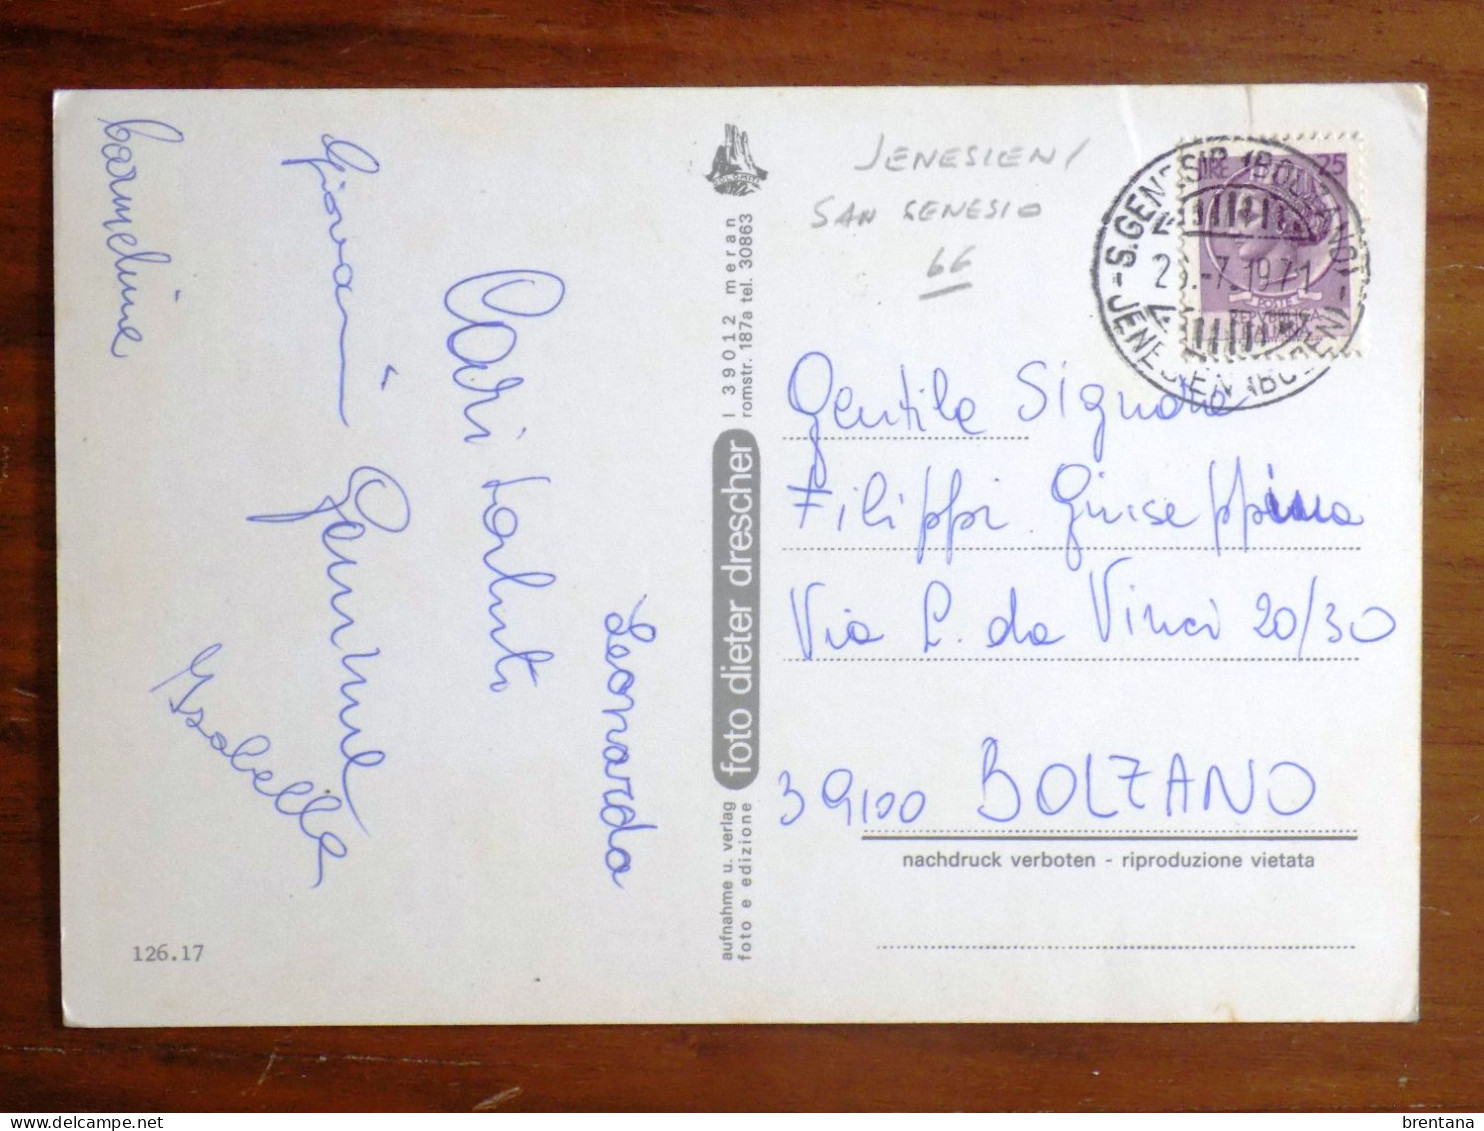 Carmeline
Giovanni
Gemme
Isabella
Cari saluti
Leonarda
126.17
DOLOMITI
I 39012 meran
romstr. 187a tel. 30863
foto dieter drescher
aufnahme u. verlag
foto e edizione
JENESIEN/
SAN GENESIO
66
LIRE 25
POSTE
REPVBBLICA
ITALIANA
-S.GENESIO (BOLZANO)-
-7.1971
JENESIEN (BOZEN)
Gentile Signora
Filippi Giuseppina
Via L. da Vinci 20/30
39100 BOLZANO
nachdruck verboten - riproduzione vietata
delcampe.net
brentana